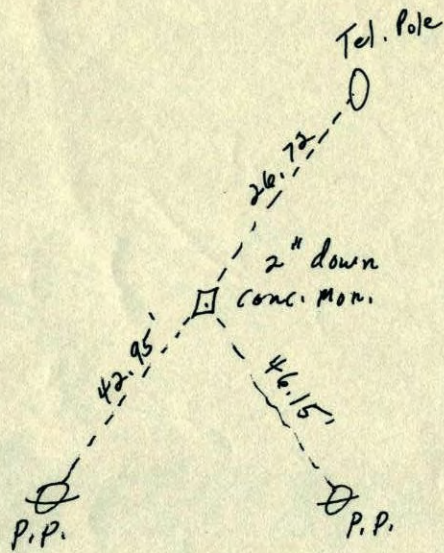 Tel. Pole
26.72
2" down
conc. mon.
42.95'
46.15'
P.P.
P.P.